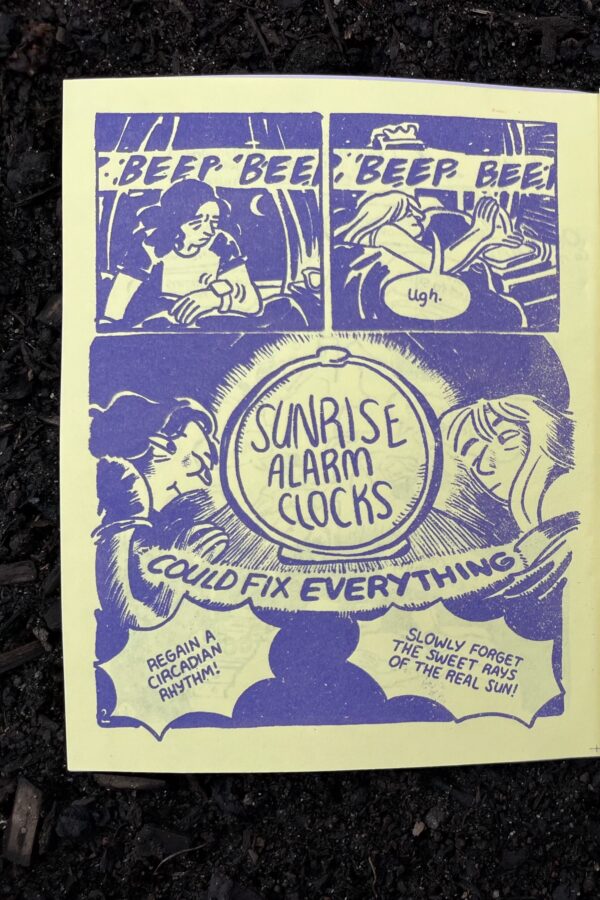 'BEEP 'BEEP
'BEEP BEEP
Ugh.
SUNRISE
ALARM
CLOCKS
COULD FIX EVERYTHING
REGAIN A
CIRCADIAN
RHYTHM!
SLOWLY FORGET
THE SWEET RAYS
OF THE REAL SUN!
2